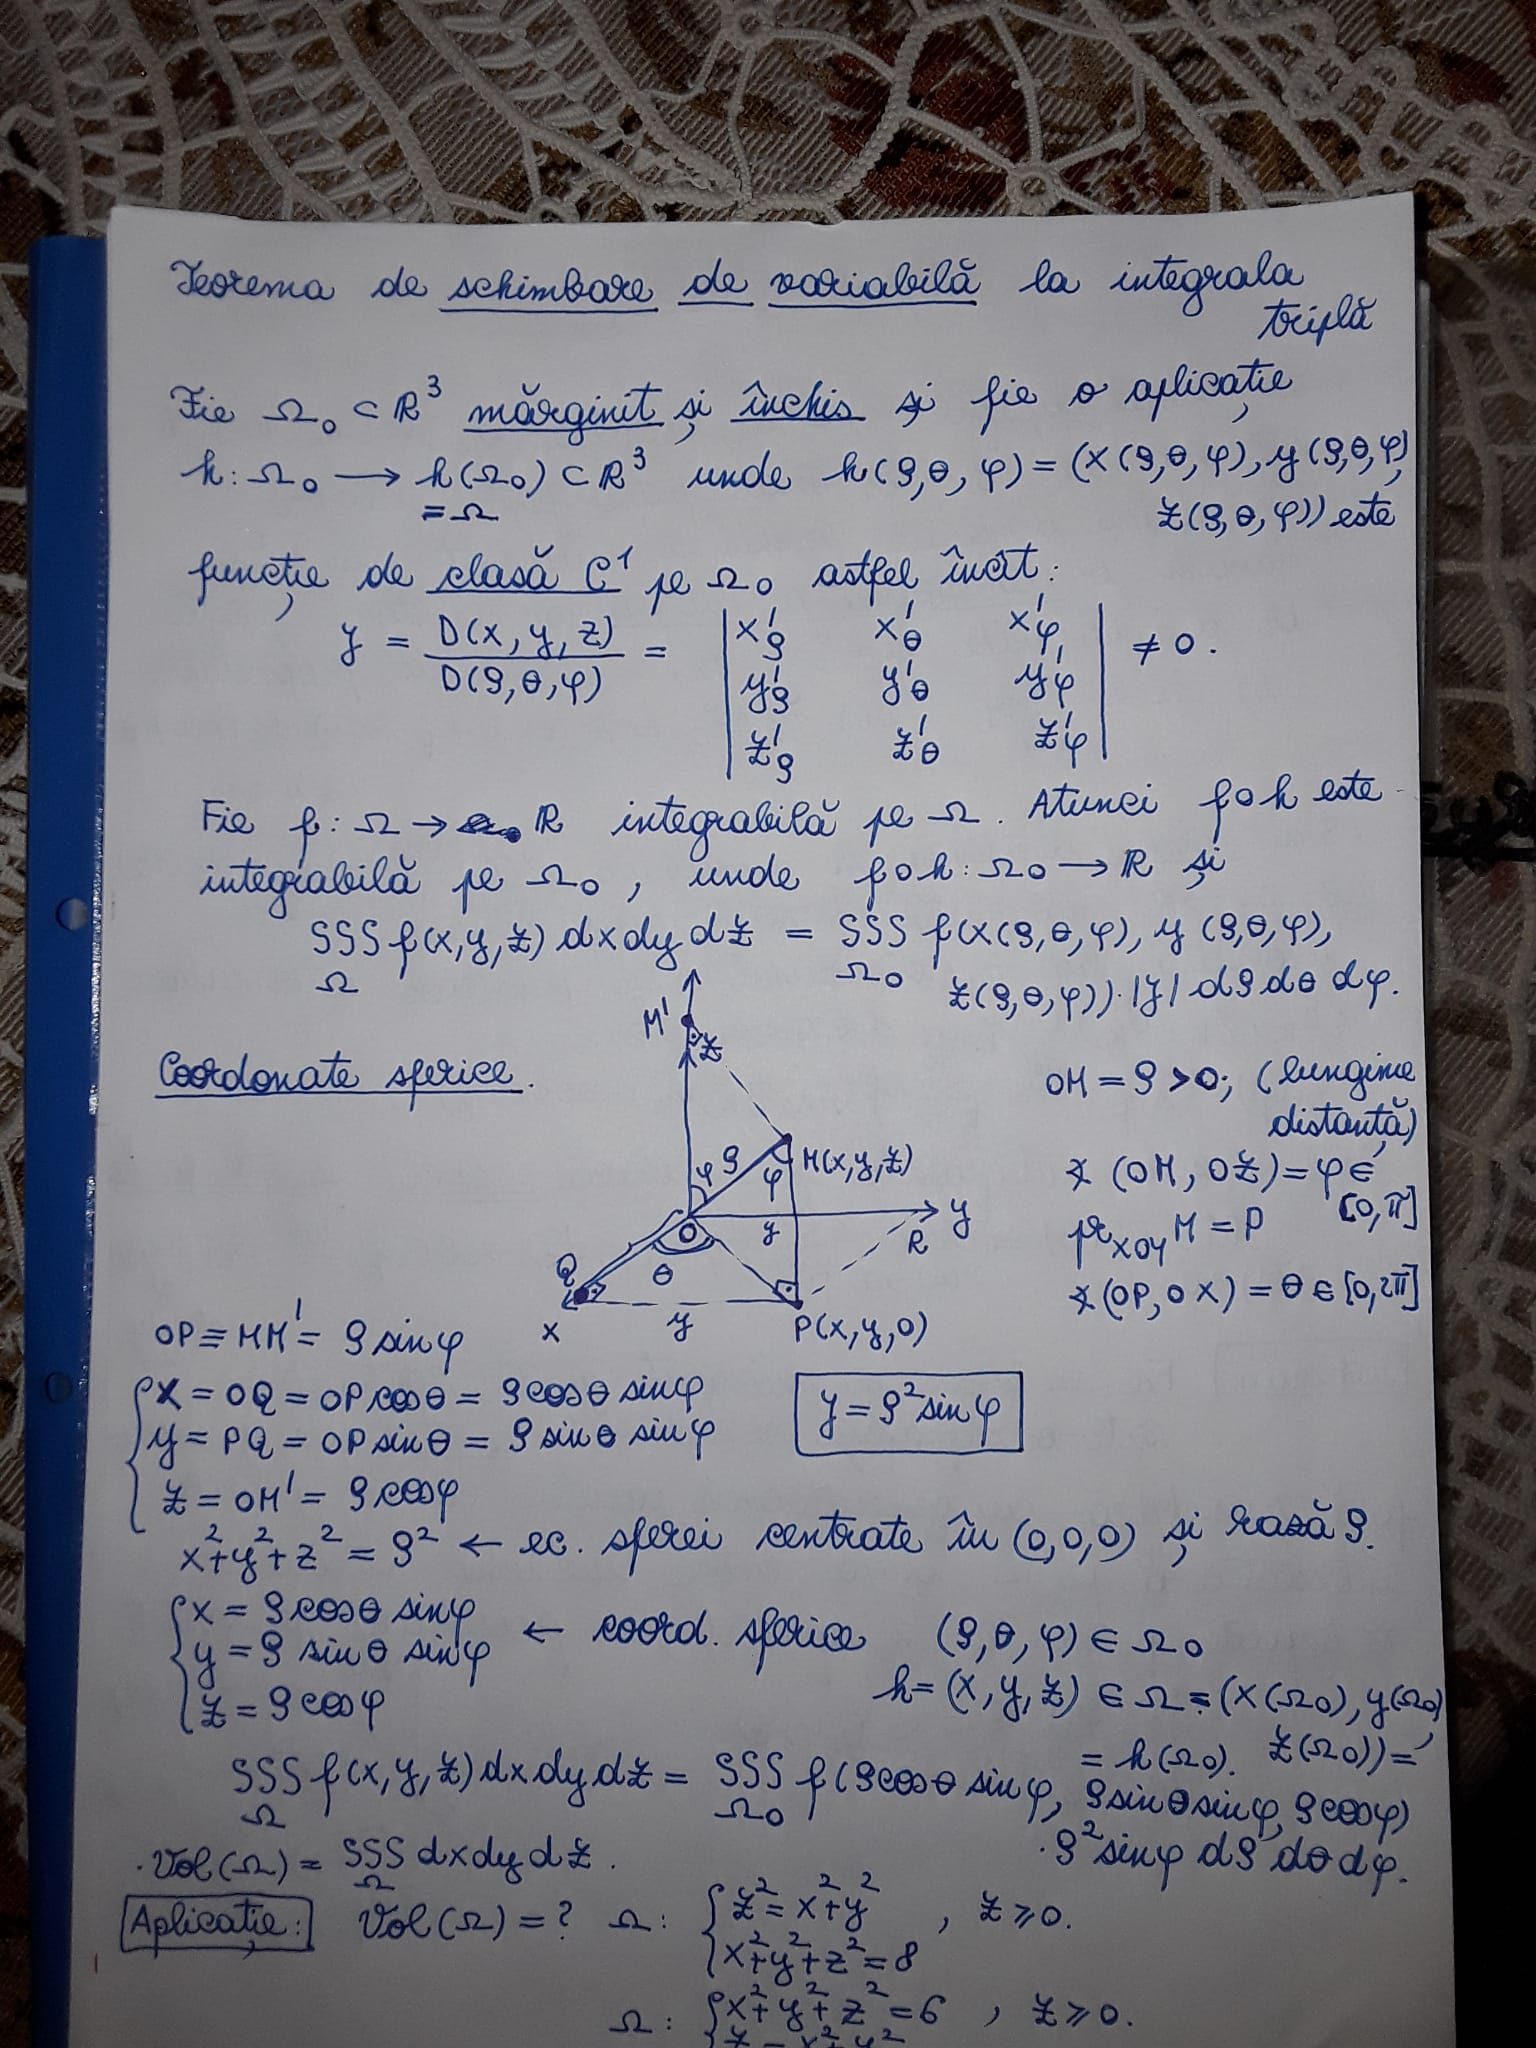 Teorema de schimbare de variabilă la integrala
triplă
Fie Ω₀ ⊂ ℝ³ mărginit și închis și fie o aplicație
h: Ω₀ → h(Ω₀) ⊂ ℝ³ unde h(ρ,θ,φ) = (x(ρ,θ,φ), y(ρ,θ,φ),
= Ω z(ρ,θ,φ)) este
funcție de clasă C¹ pe Ω₀ astfel încît:
J = D(x,y,z) / D(ρ,θ,φ) = | x'ρ x'θ x'φ | ≠ 0.
| y'ρ y'θ y'φ |
| z'ρ z'θ z'φ |
Fie f: Ω → ℝ integrabilă pe Ω. Atunci f∘h este
integrabilă pe Ω₀, unde f∘h: Ω₀ → ℝ și
∫∫∫ f(x,y,z) dxdydz = ∫∫∫ f(x(ρ,θ,φ), y(ρ,θ,φ),
Ω Ω₀ z(ρ,θ,φ))·|J| dρ dθ dφ.
M'
z
Coordonate sferice.
OM = ρ > 0; (lungime
distanță)
φ ρ φ M(x,y,z)
∢(OM, Oz) = φ ∈
[0,π]
O y R y
pr xOy M = P
Q θ
∢(OP, Ox) = θ ∈ [0,2π]
x y P(x,y,0)
OP ≡ MM' = ρ sin φ
x = OQ = OP cos θ = ρ cos θ sin φ
J = ρ² sin φ
y = PQ = OP sin θ = ρ sin θ sin φ
z = OM' = ρ cos φ
x² + y² + z² = ρ² ← ec. sferei centrate în (0,0,0) și rază ρ.
x = ρ cos θ sin φ
y = ρ sin θ sin φ ← coord. sferice (ρ,θ,φ) ∈ Ω₀
z = ρ cos φ
h = (x,y,z) ∈ Ω = (x(Ω₀), y(Ω₀),
z(Ω₀)) =
= h(Ω₀).
∫∫∫ f(x,y,z) dxdydz = ∫∫∫ f(ρ cos θ sin φ, ρ sin θ sin φ, ρ cos φ)
Ω Ω₀ · ρ² sin φ dρ dθ dφ.
· Vol(Ω) = ∫∫∫ dxdydz.
Ω
Aplicație: Vol(Ω) = ? Ω: { z² = x² + y² , z ≥ 0.
x² + y² + z² = 8
Ω: { x² + y² + z² = 6 , z ≥ 0.
z = x² + y²